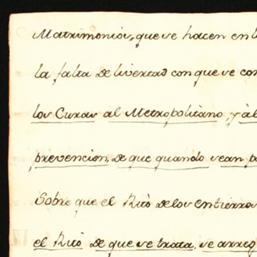 Matrimonios, que se hacen en l
la falta de livertad con que se con
los Curas al Metropolitano y à l
prevencion, de que quando sean p
Sobre que el Rito de los entierros
el Rito de que se trata, se arreg